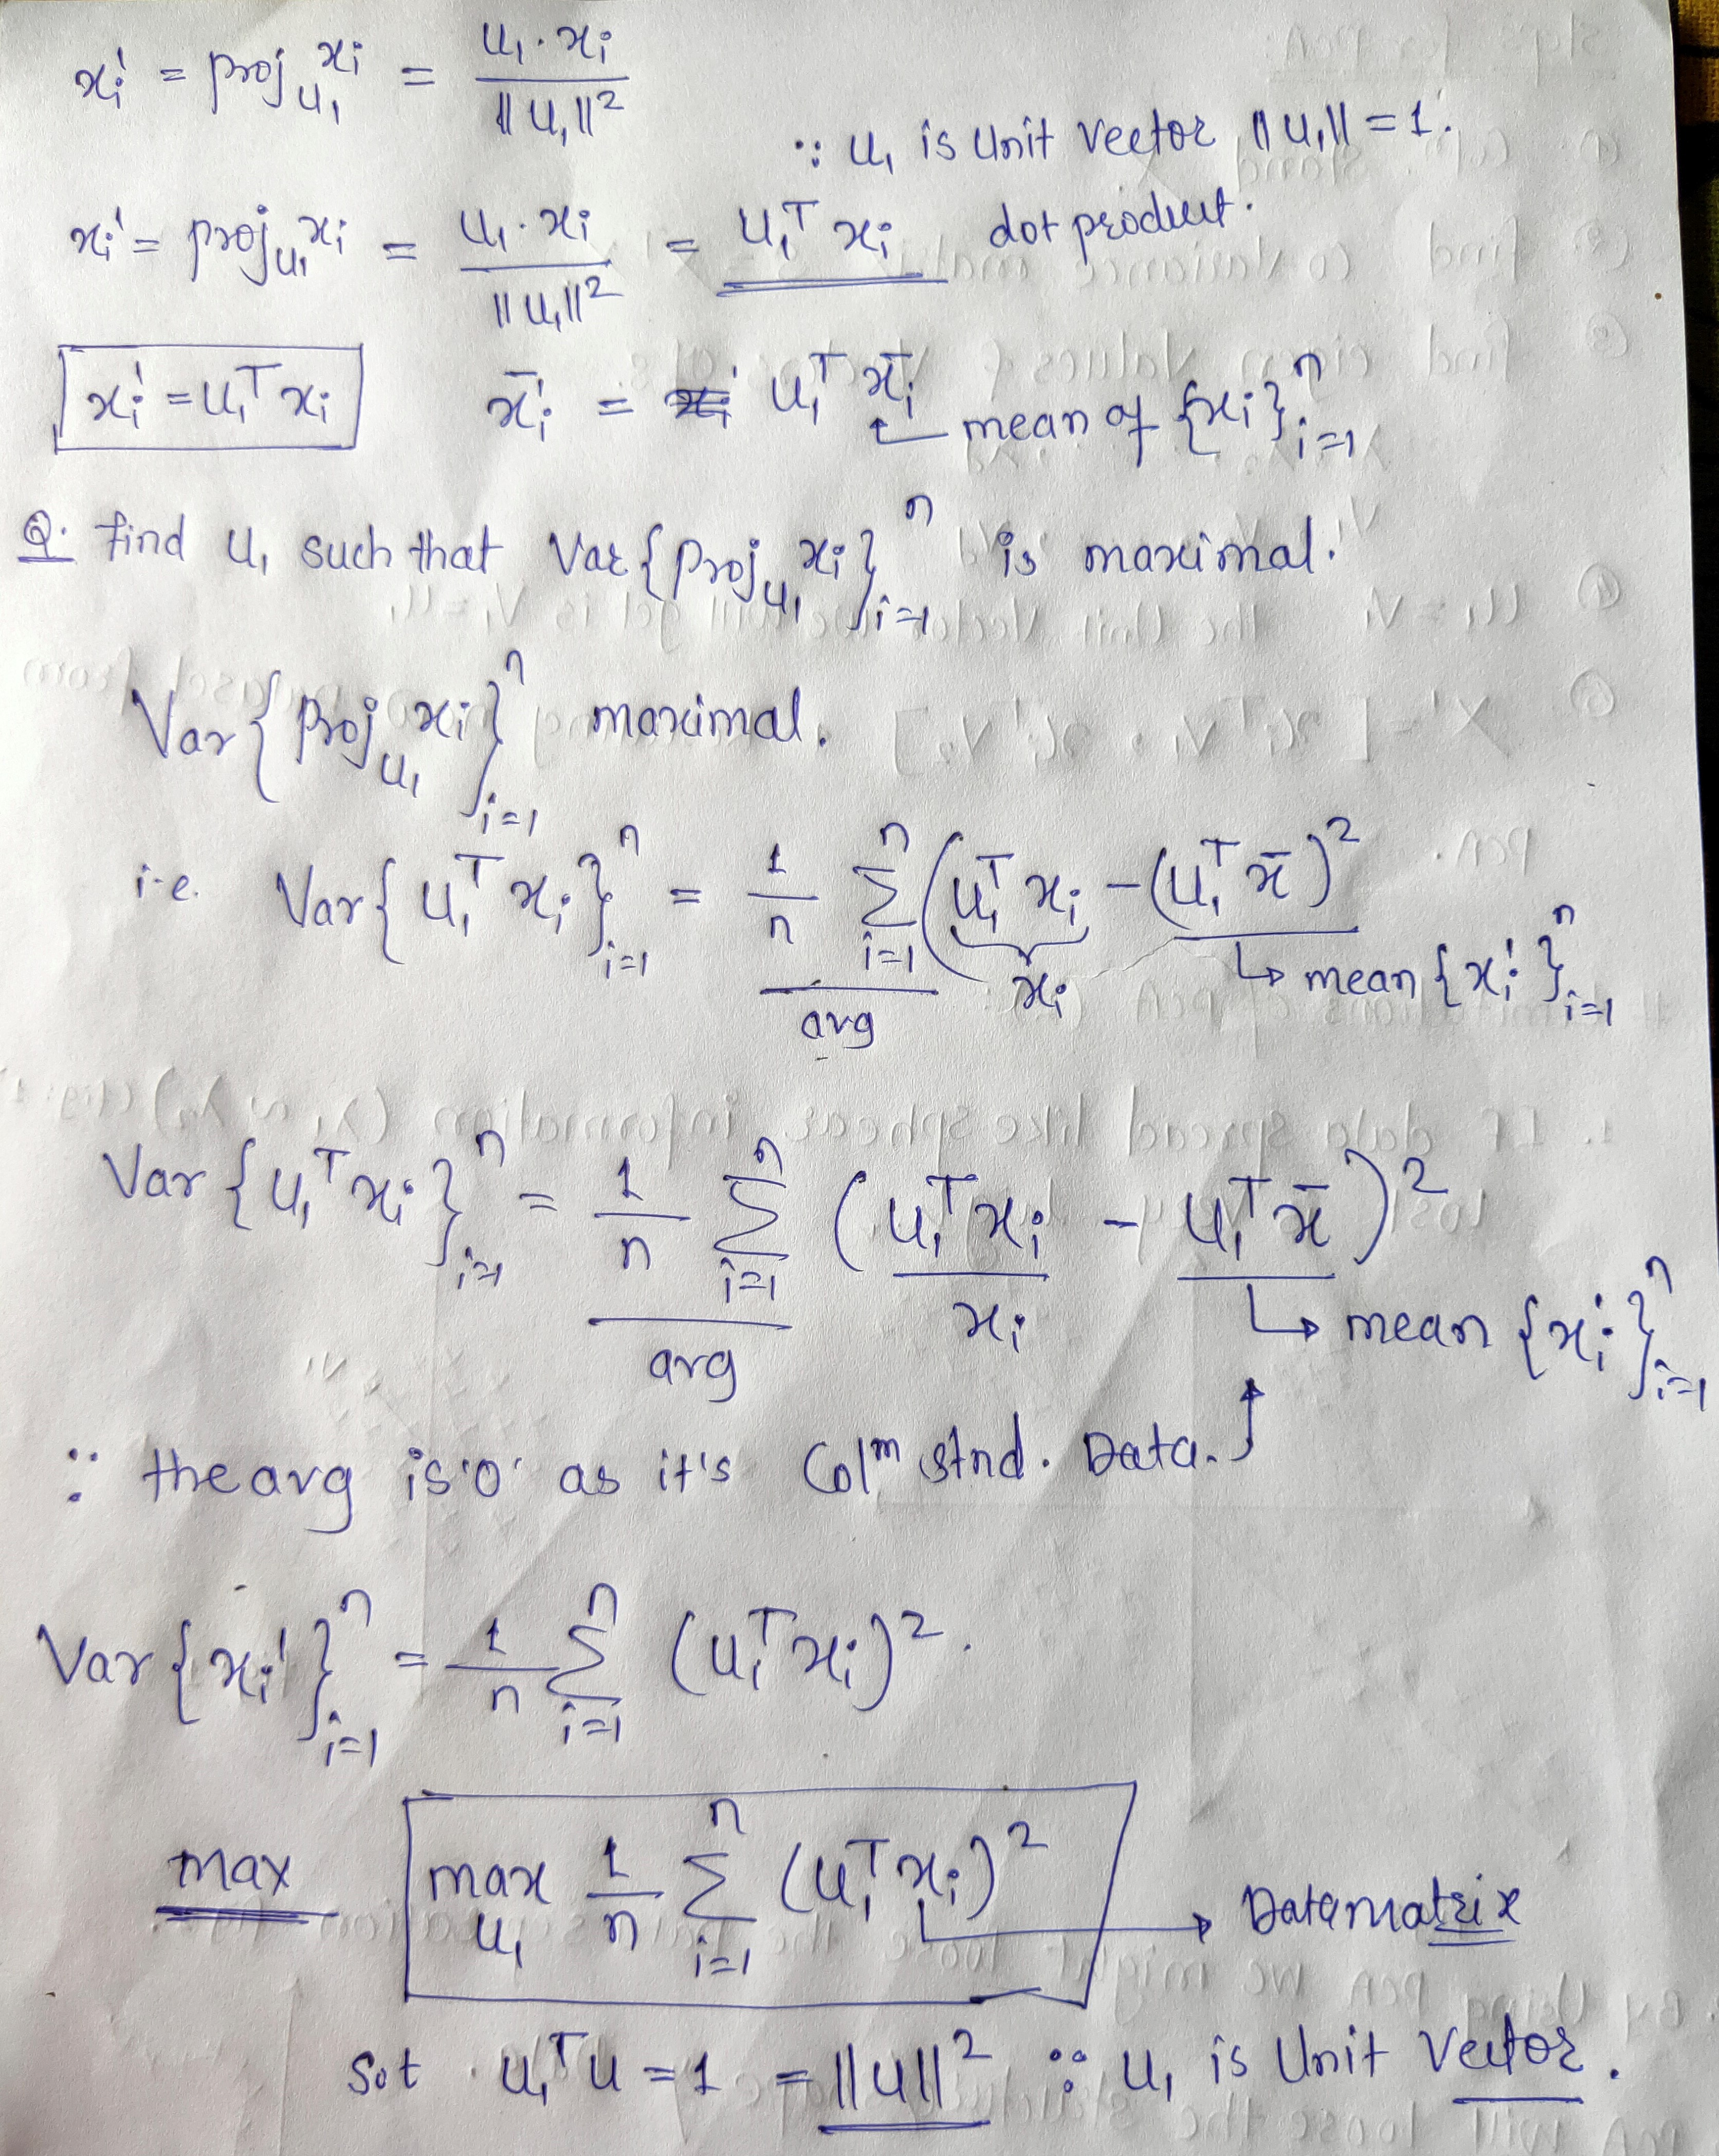 xi' = proj_u₁ xi = u₁·xi / ||u₁||²
∵ u₁ is Unit Vector ||u₁|| = 1.
xi' = proj_u₁ xi = u₁·xi / ||u₁||² = u₁ᵀ xi dot product.
xi' = u₁ᵀ xi    x̄i' = u₁ᵀ x̄i ↳ mean of {xi}ⁿi=1
Q. find u₁ such that Var{proj_u₁ xi}ⁿi=1 is maximal.
Var{proj_u₁ xi}ⁿi=1 maximal.
i.e. Var{u₁ᵀ xi}ⁿi=1 = 1/n Σⁿi=1 (u₁ᵀ xi - (u₁ᵀ x̄)²
avg    xi    ↳ mean {xi'}ⁿi=1
Var{u₁ᵀ xi}ⁿi=1 = 1/n Σⁿi=1 (u₁ᵀ xi - u₁ᵀ x̄)²
avg    xi    ↳ mean {xi'}ⁿi=1
∵ the avg is '0' as it's Colᵐ stnd. Data.
Var{xi'}ⁿi=1 = 1/n Σⁿi=1 (u₁ᵀ xi)².
max    max u₁ 1/n Σⁿi=1 (u₁ᵀ xi)² → Datamatrix
S.t u₁ᵀ u = 1 = ||u||² ∵ u₁ is Unit Vector.